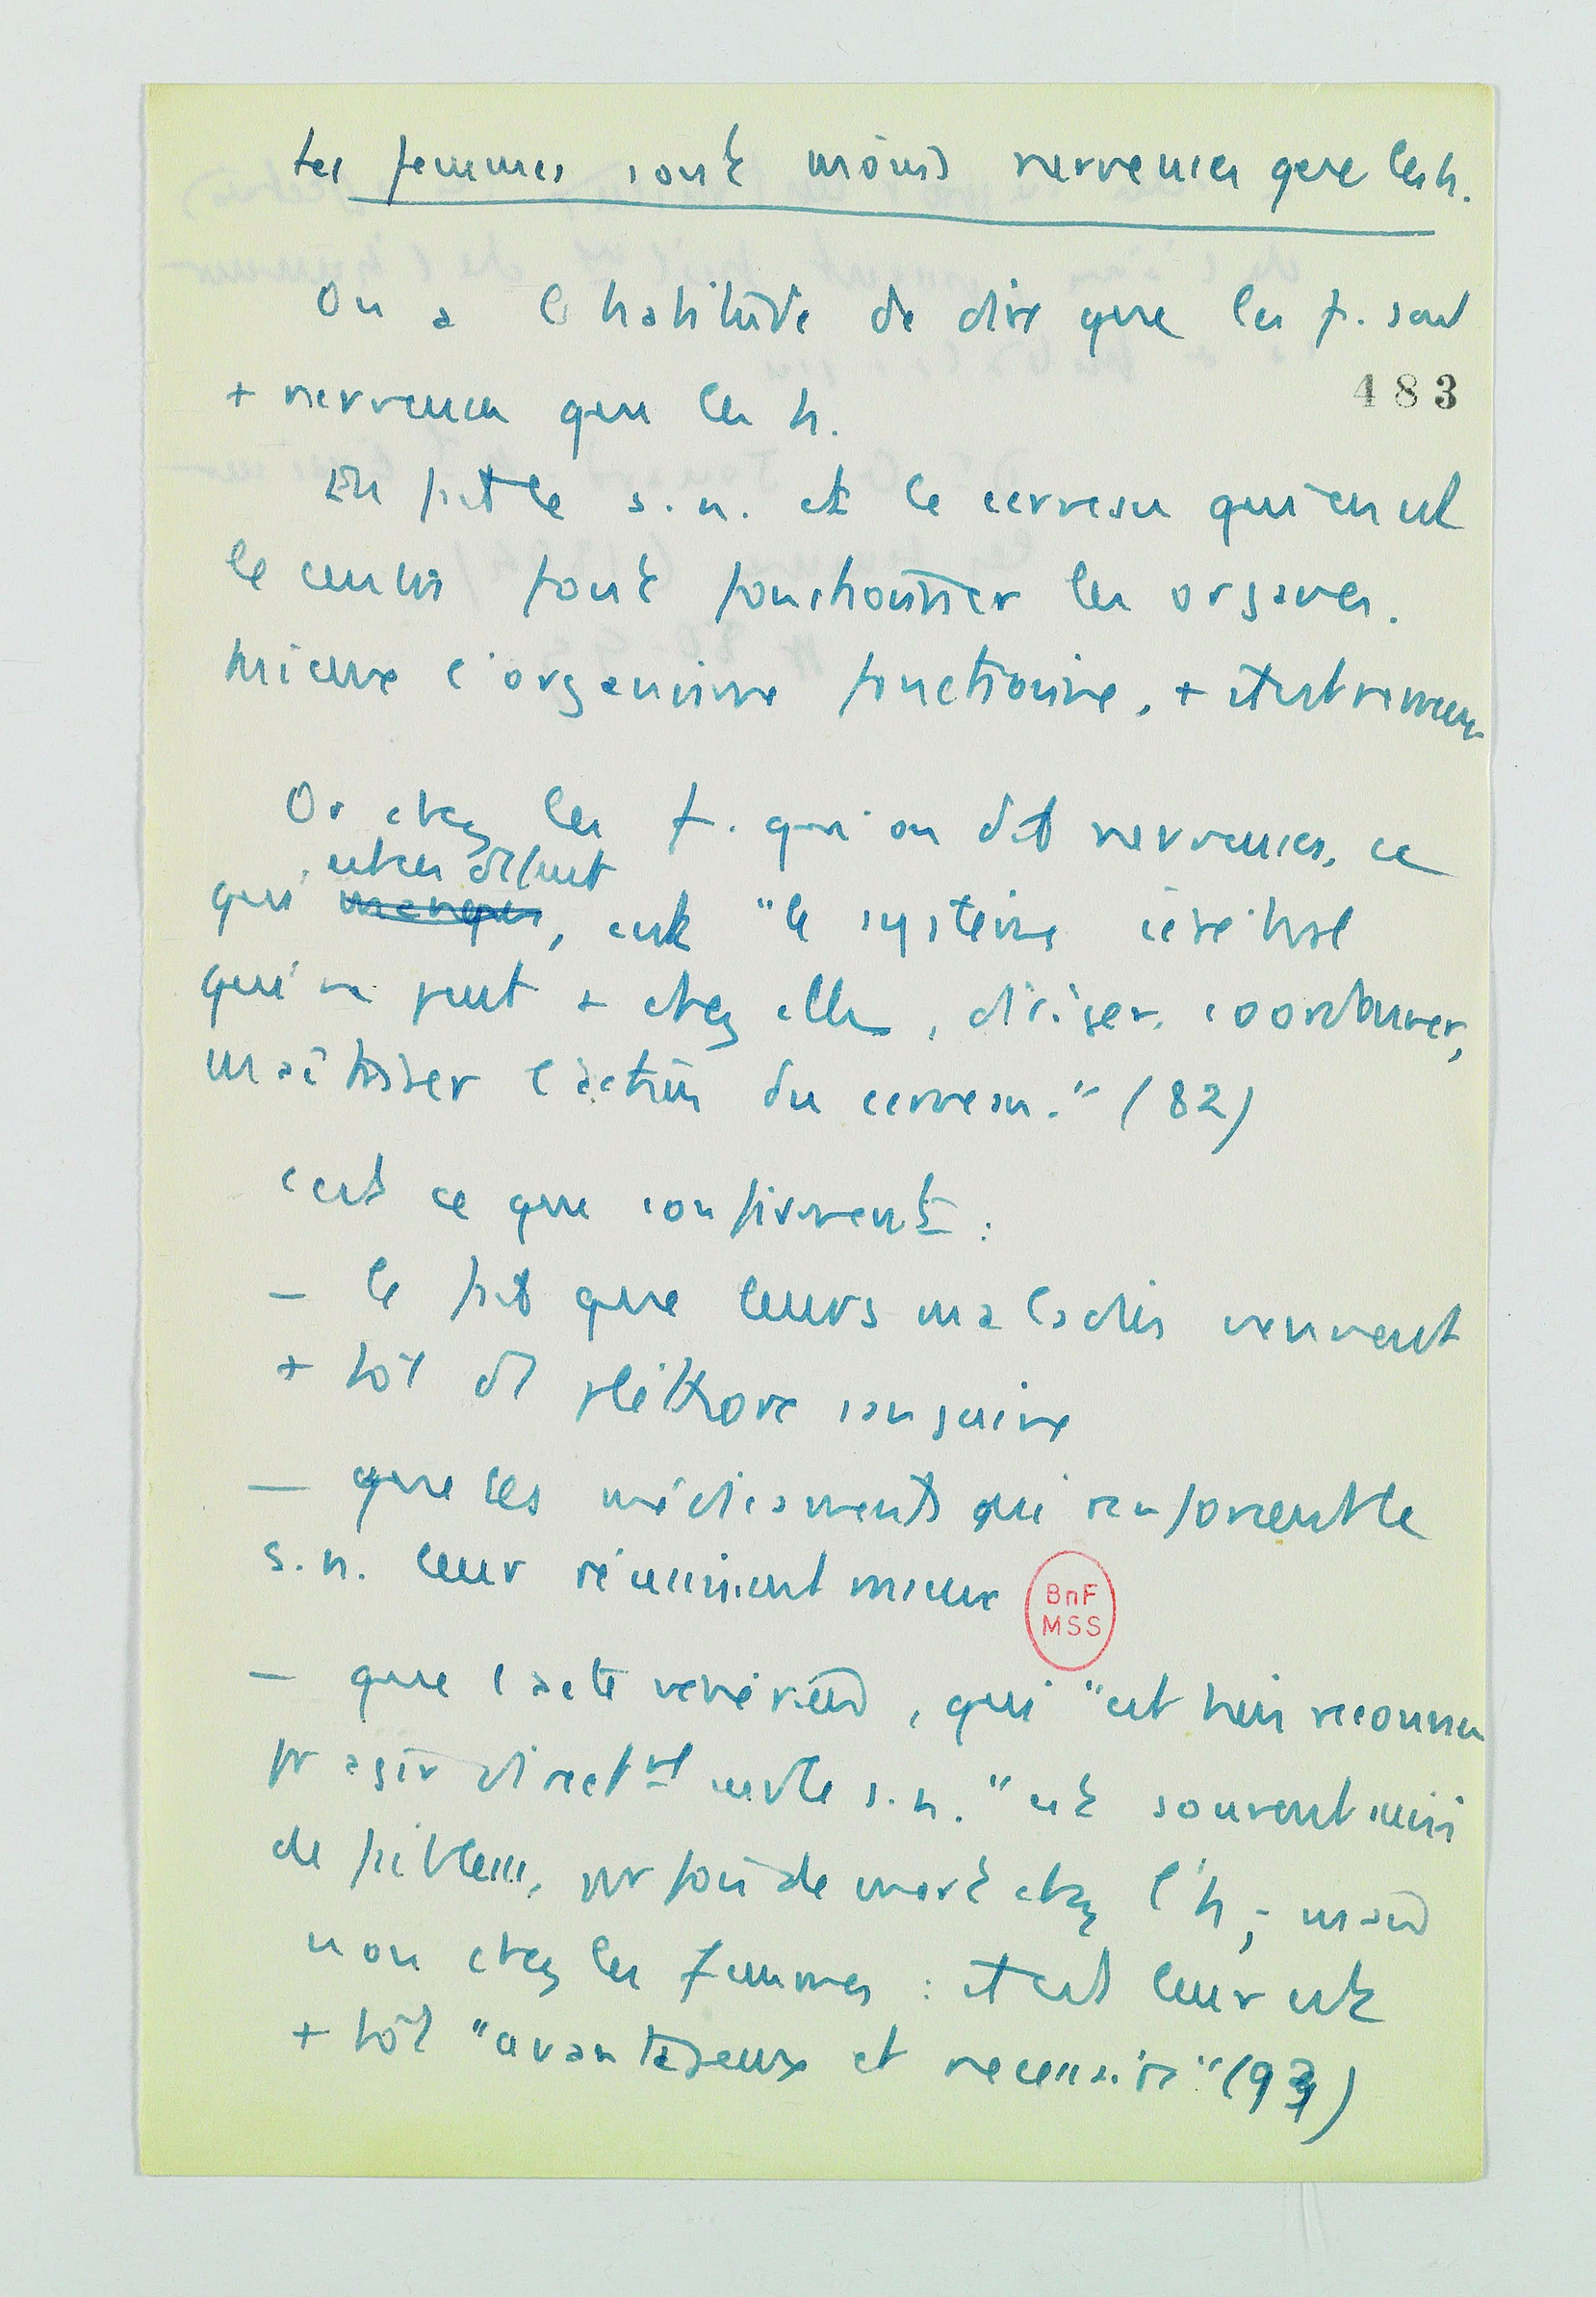 Les femmes sont moins nerveuses que les h.
On a l'habitude de dire que les f. sont
+ nerveuses que les h.
483
En fait le s.n. et le cerveau qui en est
le centre font fonctionner les organes.
Mieux l'organisme fonctionne, + il est nerveux
Or chez les f. qu'on dit nerveuses, ce
est en défaut
qui manque, c'est "le système cérébral
qui ne peut + chez elles, diriger, coordonner,
maîtriser l'action du cerveau." (82)
C'est ce que confirment :
– le fait que leurs maladies viennent
+ tôt de pléthore sanguine
– que les médicaments qui renforcent le
s.n. leur réussissent mieux
BnF
MSS
– que l'acte vénérien, qui "est bien reconnu
pr agir directmt sur le s.n." est souvent suivi
de faiblesse, parfois de mort chez l'h ; mais
non chez les femmes : il leur est
+ tôt "avantageux et nécessaire" (93)